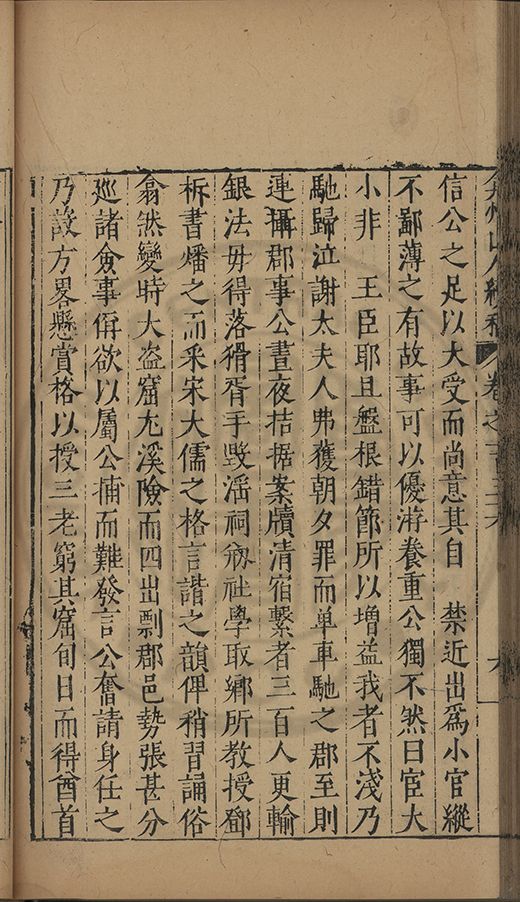 弇州山人續稿 卷之一百三十六
信公之足以大受而尚意其自 禁近出爲小官縱
不鄙薄之有故事可以優游養重公獨不然曰官大
小非 王臣耶且盤根錯節所以增益我者不淺乃
馳歸泣謝太夫人弗獲朝夕罪而单車馳之郡至則
連攝郡事公晝夜拮据案牘清宿繫者三百人更輸
銀法毋得落猾胥手毀滛祠剏社學取鄉所教授鄧
析書燔之而采宋大儒之格言諧之韻俾稍習誦俗
翕然變時大盗窟尤溪險而四出剽郡邑勢張甚分
廵諸僉事欲以屬公捕而難發言公奮請身任之
乃設方畧懸賞格以授三老窮其窟旬日而得酋首